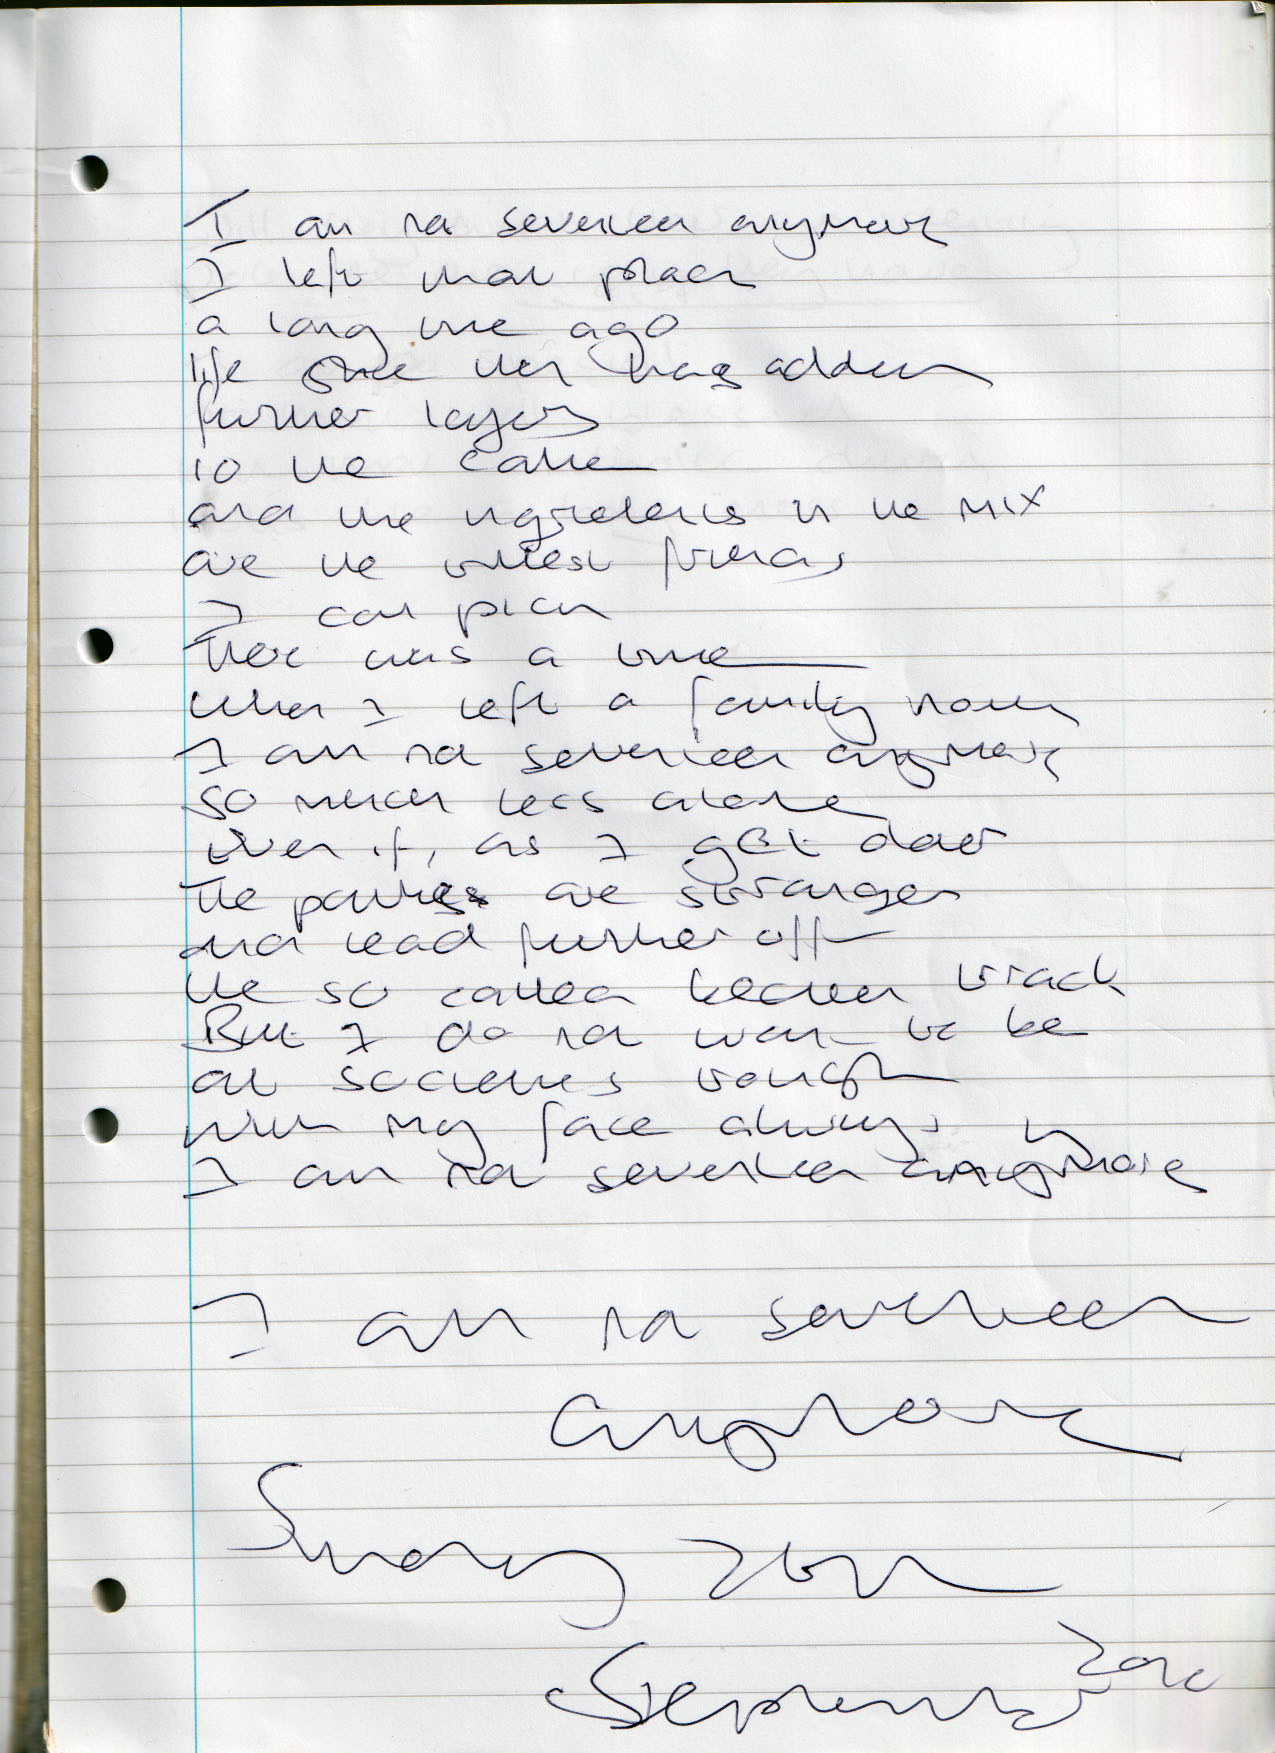 I am not seventeen anymore
I left that place
a long time ago
life since then has added
further layers
to the cake
and the ingredients in the mix
are the wildest
I can pick
There was a time
When I left a family home
I am not seventeen anymore
so much less alone
even if, as I get older
The parties are stranger
and lead further off
the so called beaten track
But I do not want to be
at societies trough
with my face always in
I am not seventeen anymore
I am not seventeen
anymore
Sunday 26th
September 2010